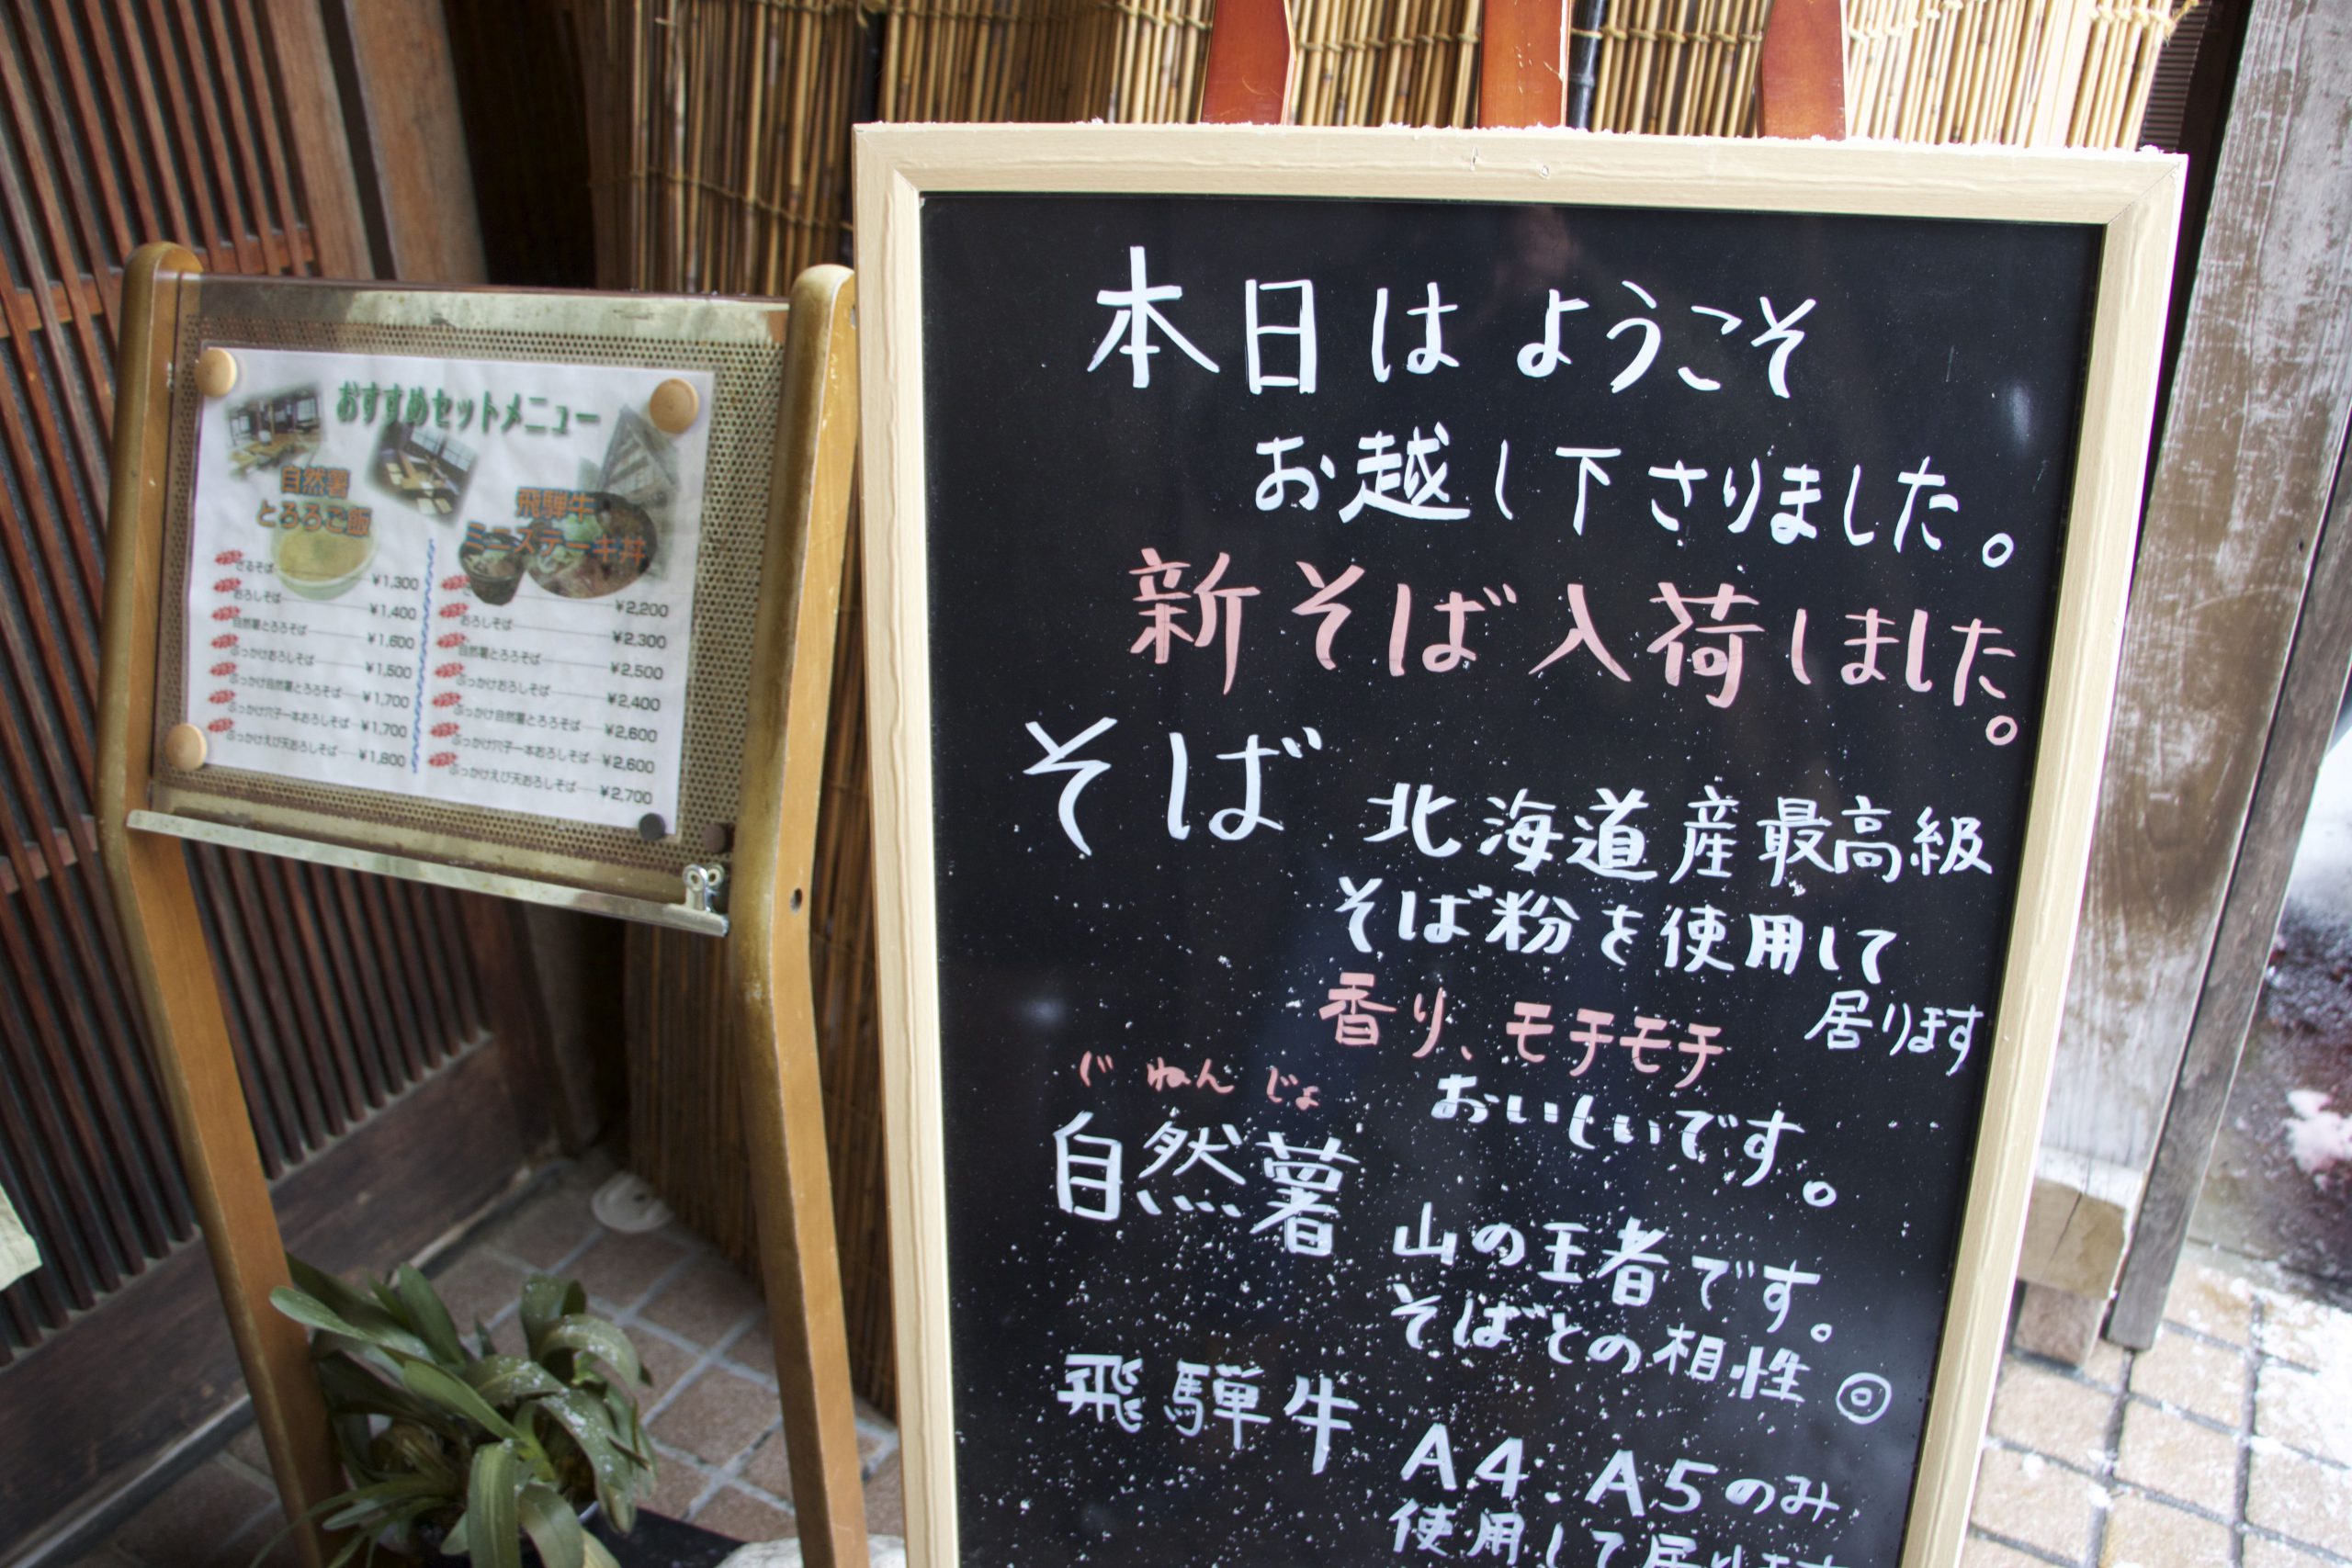 おすすめセットメニュー
自然薯
とろろご飯
ざるそば ¥1,300
おろしそば ¥1,400
自然薯とろろそば ¥1,600
ぶっかけおろしそば ¥1,500
ぶっかけ自然薯とろろそば ¥1,700
ぶっかけ穴子一本おろしそば ¥1,700
ぶっかけえび天おろしそば ¥1,800
飛騨牛
ミニステーキ丼
¥2,200
おろしそば ¥2,300
自然薯とろろそば ¥2,500
ぶっかけおろしそば ¥2,400
ぶっかけ自然薯とろろそば ¥2,600
ぶっかけ穴子一本おろしそば ¥2,600
ぶっかけえび天おろしそば ¥2,700
本日はようこそ
お越し下さりました。
新そば入荷しました。
そば 北海道産最高級
そば粉を使用して
居ります
香り、モチモチ
おいしいです。
じねんじょ
自然薯 山の王者です。
そばとの相性◎
飛騨牛 A4.A5のみ
使用して居ります